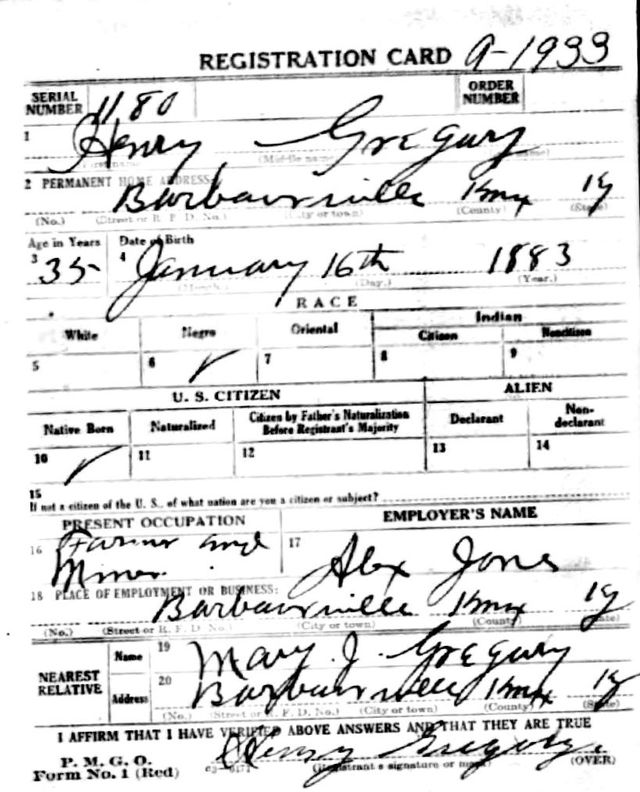 REGISTRATION CARD A-1933
SERIAL NUMBER 1180 ORDER NUMBER
1 Henry Gregory
(First name) (Middle name) (Last name)
2 PERMANENT HOME ADDRESS:
Barbourville Knox Ky
(No.) (Street or R. F. D. No.) (City or town) (County) (State)
Age in Years Date of Birth
3 35 4 January 16th 1883
(Month.) (Day.) (Year.)
RACE
White Negro Oriental Indian
Citizen Noncitizen
5 6 ✓ 7 8 9
U. S. CITIZEN ALIEN
Native Born Naturalized Citizen by Father's Naturalization Before Registrant's Majority Declarant Non-declarant
10 ✓ 11 12 13 14
15
If not a citizen of the U. S., of what nation are you a citizen or subject?
PRESENT OCCUPATION EMPLOYER'S NAME
16 Farmer and 17
Miner Alex Jones
18 PLACE OF EMPLOYMENT OR BUSINESS:
Barbourville Knox Ky
(No.) (Street or R. F. D. No.) (City or town) (County) (State)
NEAREST RELATIVE Name 19 Mary J. Gregory
Address 20 Barbourville Knox Ky
(No.) (Street or R. F. D. No.) (City or town) (County) (State)
I AFFIRM THAT I HAVE VERIFIED ABOVE ANSWERS AND THAT THEY ARE TRUE
P. M. G. O.
Form No. 1 (Red) c3—6171 Henry Gregory
(Registrant's signature or mark) (OVER)